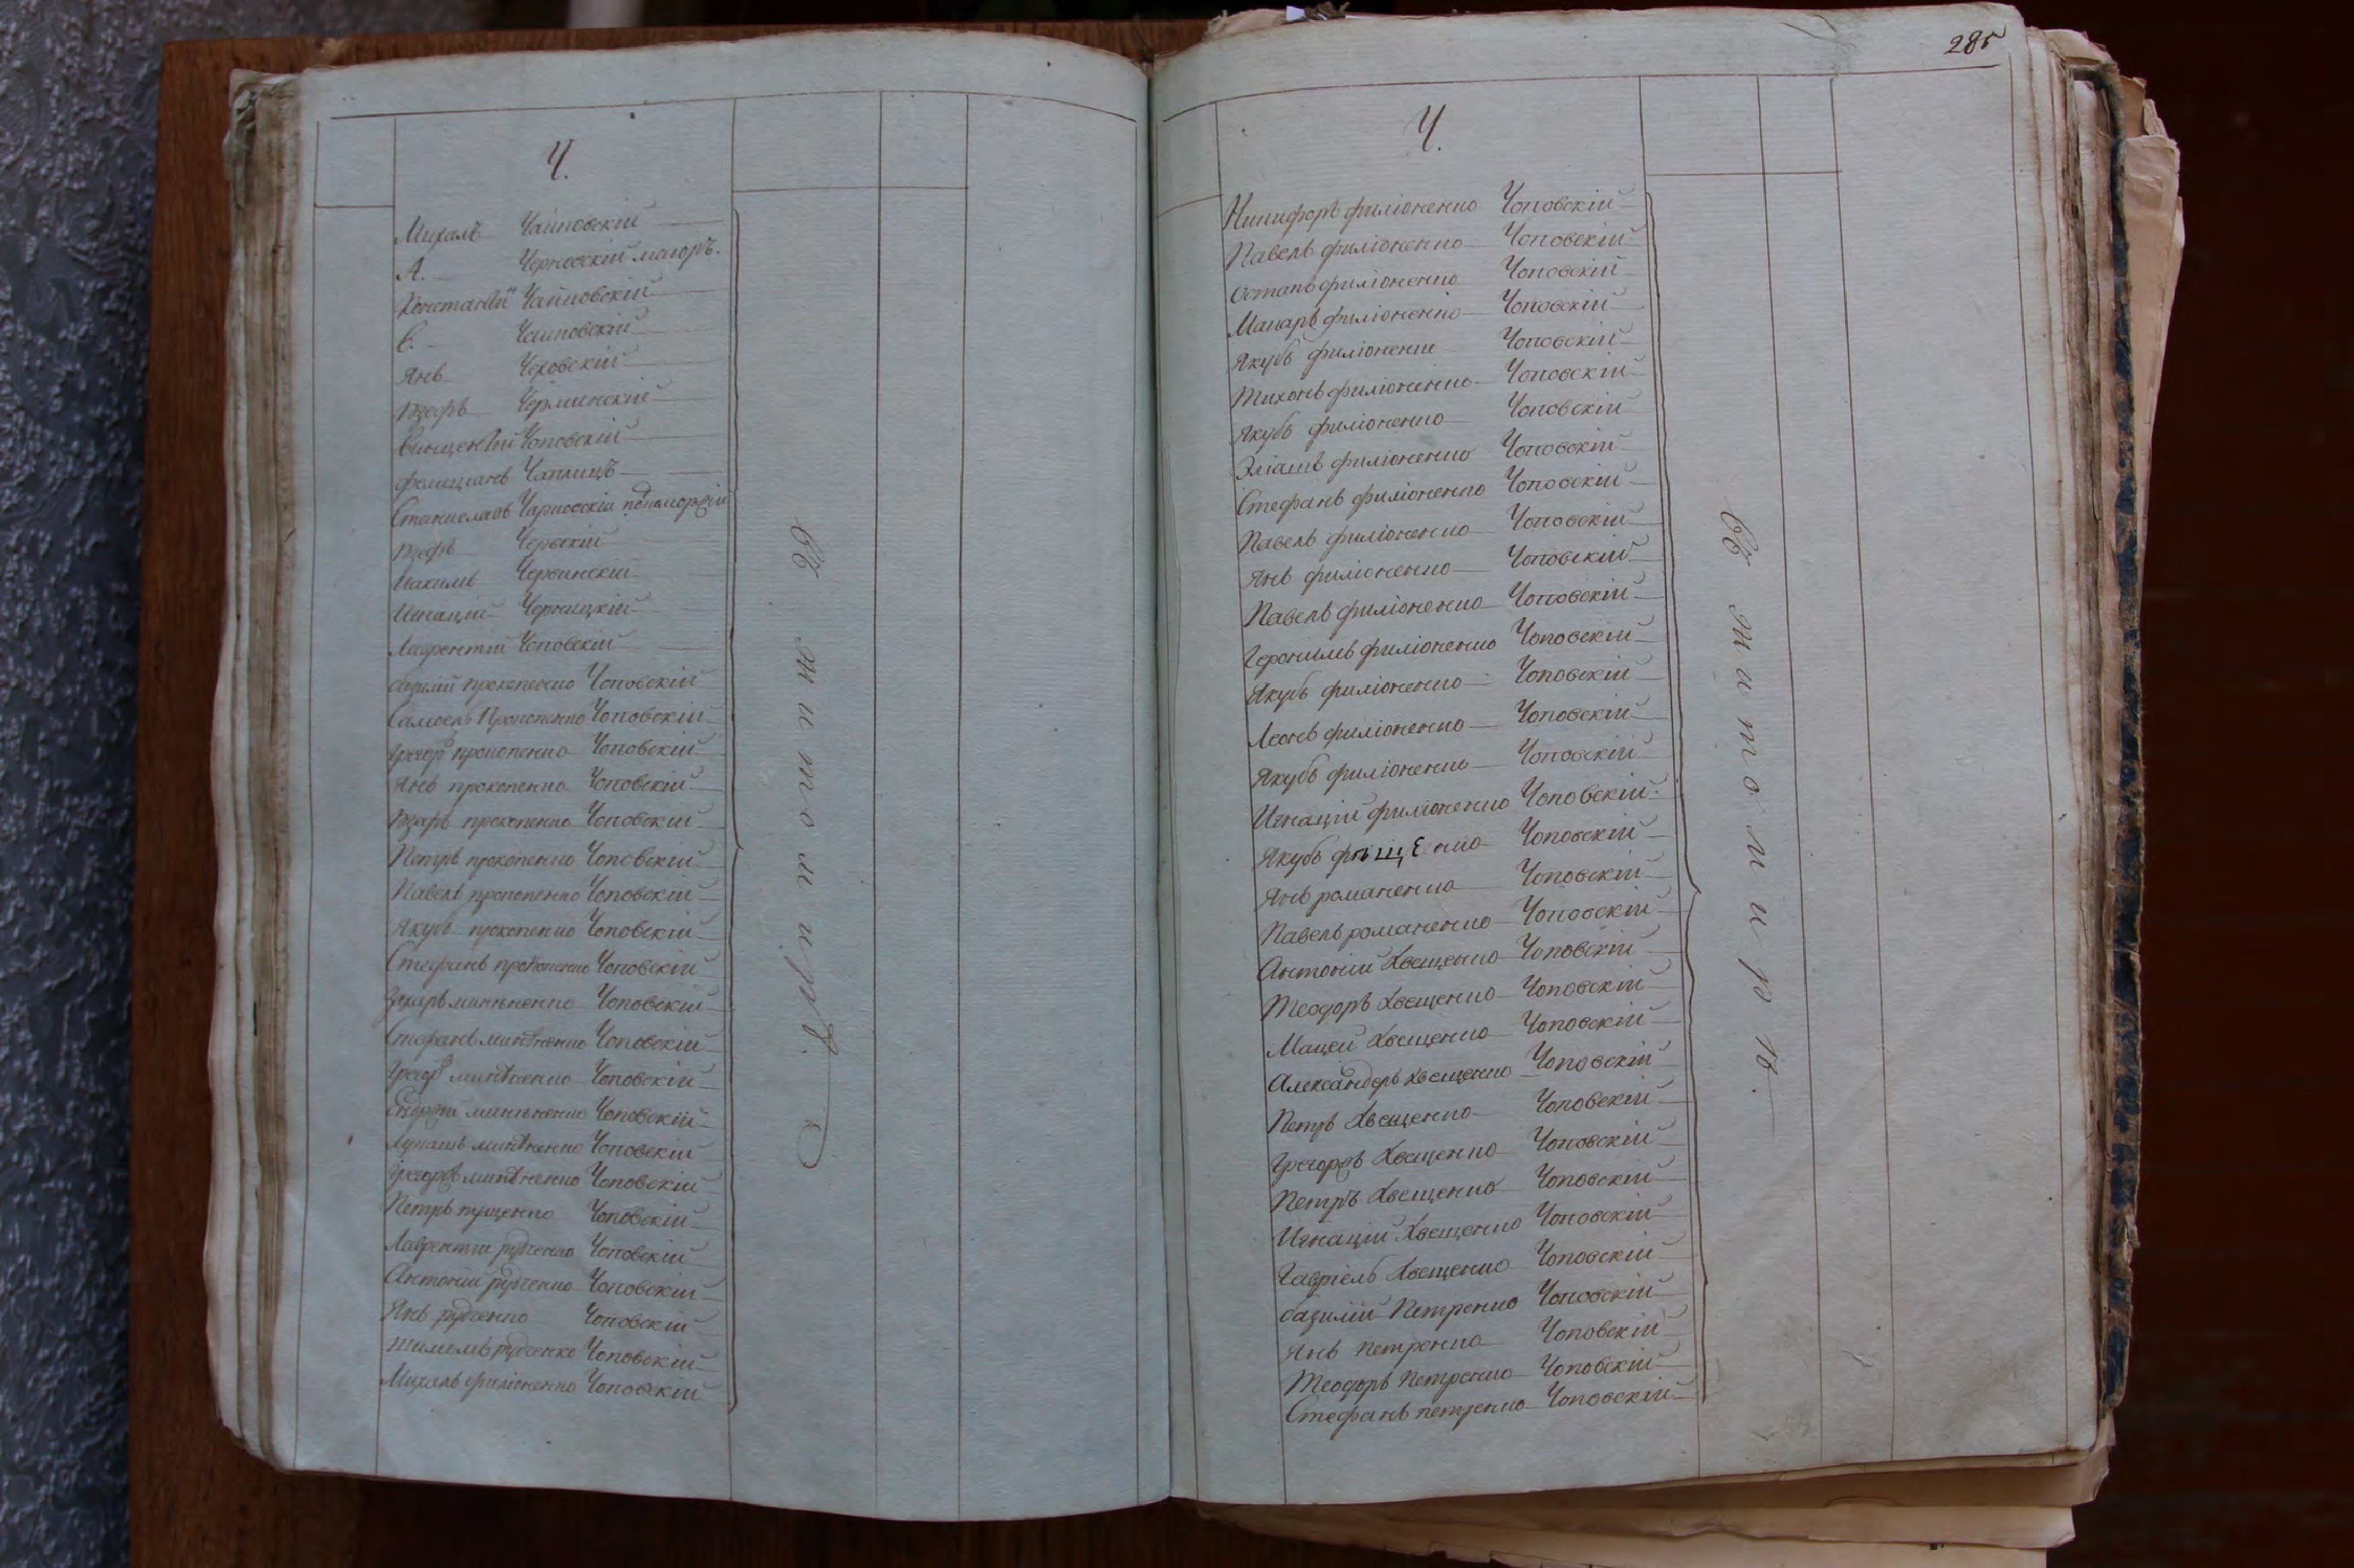 Ч.
Михалъ Чайковскій
А. Черновскій маіоръ.
Константій Чайковскій
С. Чайковскій
Янъ Чеховскій
Іозефъ Черминскій
Винцентій Чоповскій
Фелиціанъ Чаплицъ
Станиславъ Чарновскій
Іозефъ Червскій
Іахимъ Червинскій
Игнацій Черницкій
Лаврентій Чоповскій
базилій прокопенко Чоповскій
Самоель Прокопенко Чоповскій
Грегоръ прокопенко Чоповскій
Янъ прокопенко Чоповскій
Іозефъ прокопенко Чоповскій
Петръ прокопенко Чоповскій
Павелъ прокопенко Чоповскій
Якубъ прокопенко Чоповскій
Стефанъ прокопенко Чоповскій
Захаръ миньненко Чоповскій
Стефанъ миньненко Чоповскій
Грегоръ миньненко Чоповскій
миньненко Чоповскій
Лукашъ миньненко Чоповскій
Грегоръ миньненко Чоповскій
Петръ Чоповскій
Лаврентій рудченко Чоповскій
Антоній рудченко Чоповскій
Янъ рудченко Чоповскій
рудченко Чоповскій
Михалъ филіоненко Чоповскій
въ житомирѣ
285
Ч.
Никифоръ филіоненко Чоповскій
Павелъ филіоненко Чоповскій
Остапъ филіоненко Чоповскій
Макаръ филіоненко Чоповскій
Якубъ филіоненко Чоповскій
Тихонъ филіоненко Чоповскій
Якубъ филіоненко Чоповскій
Эліашъ филіоненко Чоповскій
Стефанъ филіоненко Чоповскій
Павелъ филіоненко Чоповскій
Янъ филіоненко Чоповскій
Павелъ филіоненко Чоповскій
Геронимъ филіоненко Чоповскій
Якубъ филіоненко Чоповскій
Леонъ филіоненко Чоповскій
Якубъ филіоненко Чоповскій
Игнацій филіоненко Чоповскій
Якубъ Чоповскій
Янъ романенко Чоповскій
Павелъ романенко Чоповскій
Антоній Хвещенко Чоповскій
Теодоръ Хвещенко Чоповскій
Мацей Хвещенко Чоповскій
Александеръ Хвещенко Чоповскій
Петръ Хвещенко Чоповскій
Грегоръ Хвещенко Чоповскій
Петръ Хвещенко Чоповскій
Игнацій Хвещенко Чоповскій
Гавріель Хвещенко Чоповскій
базилій Петренко Чоповскій
Янъ Петренко Чоповскій
Теодоръ Петренко Чоповскій
Стефанъ петренко Чоповскій
въ житомирѣ.